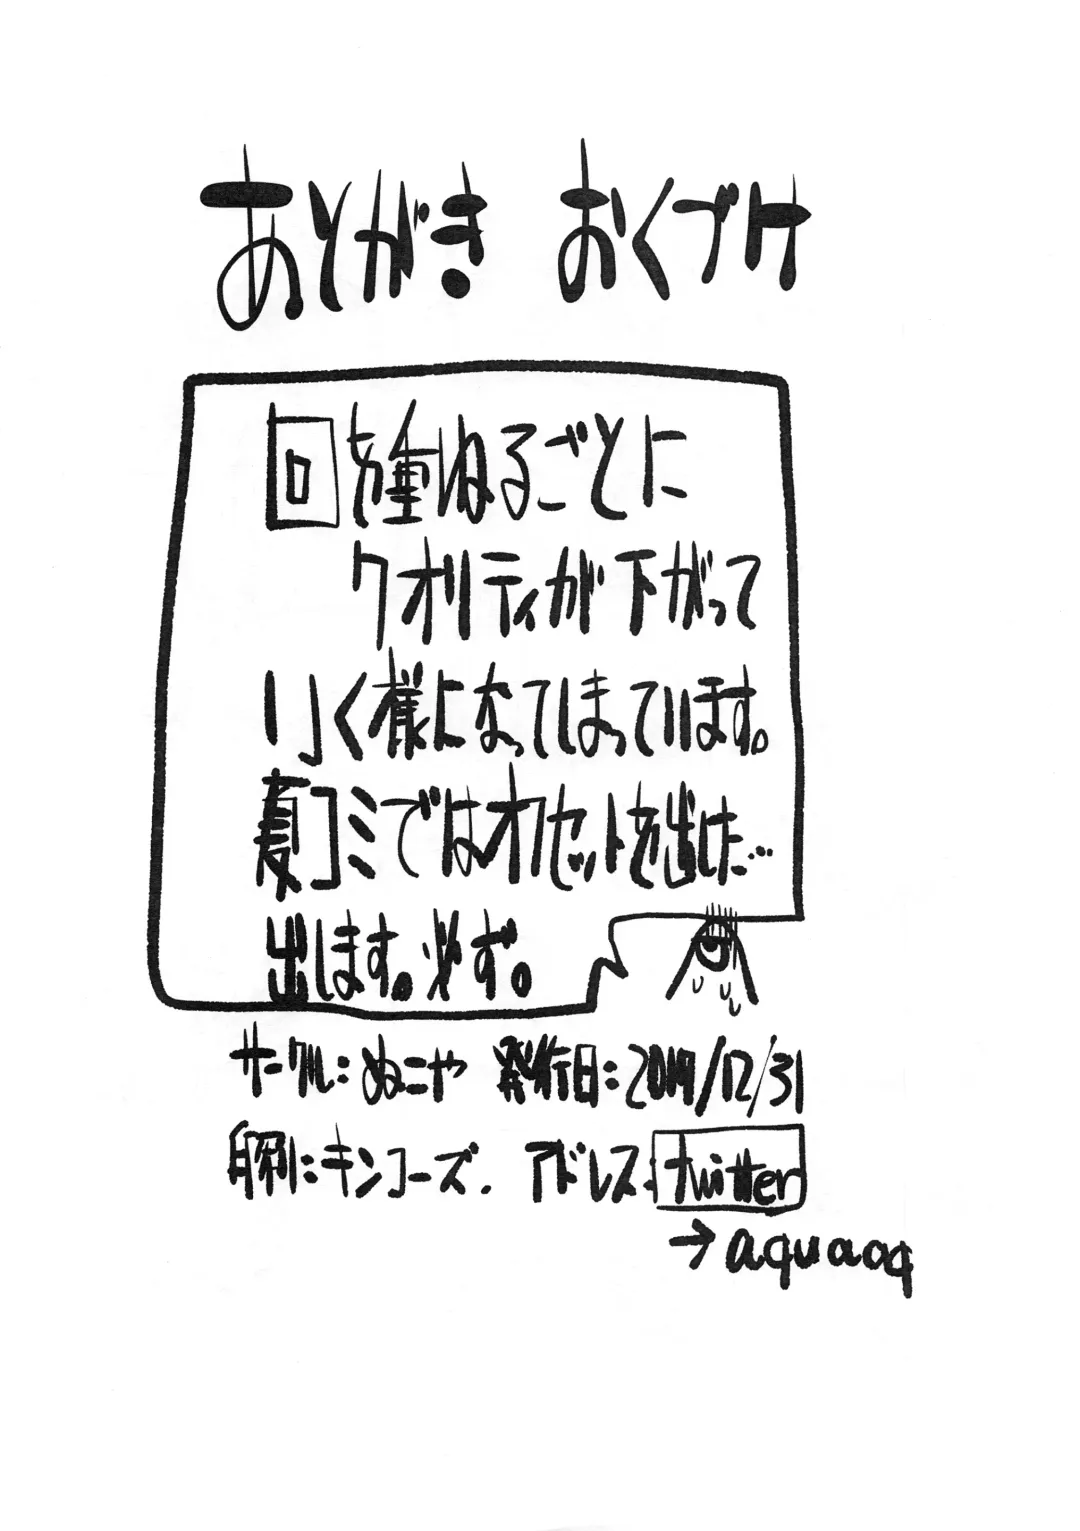 あとがき おくづけ
回を重ねるごとに
クオリティが下がって
いく様になってしまっています。
夏コミではオフセットを出した…
出します。必ず。
サークル:ぬこや 発行日:2017/12/31
印刷:キンコーズ. アドレス:twitter
→aquaoq